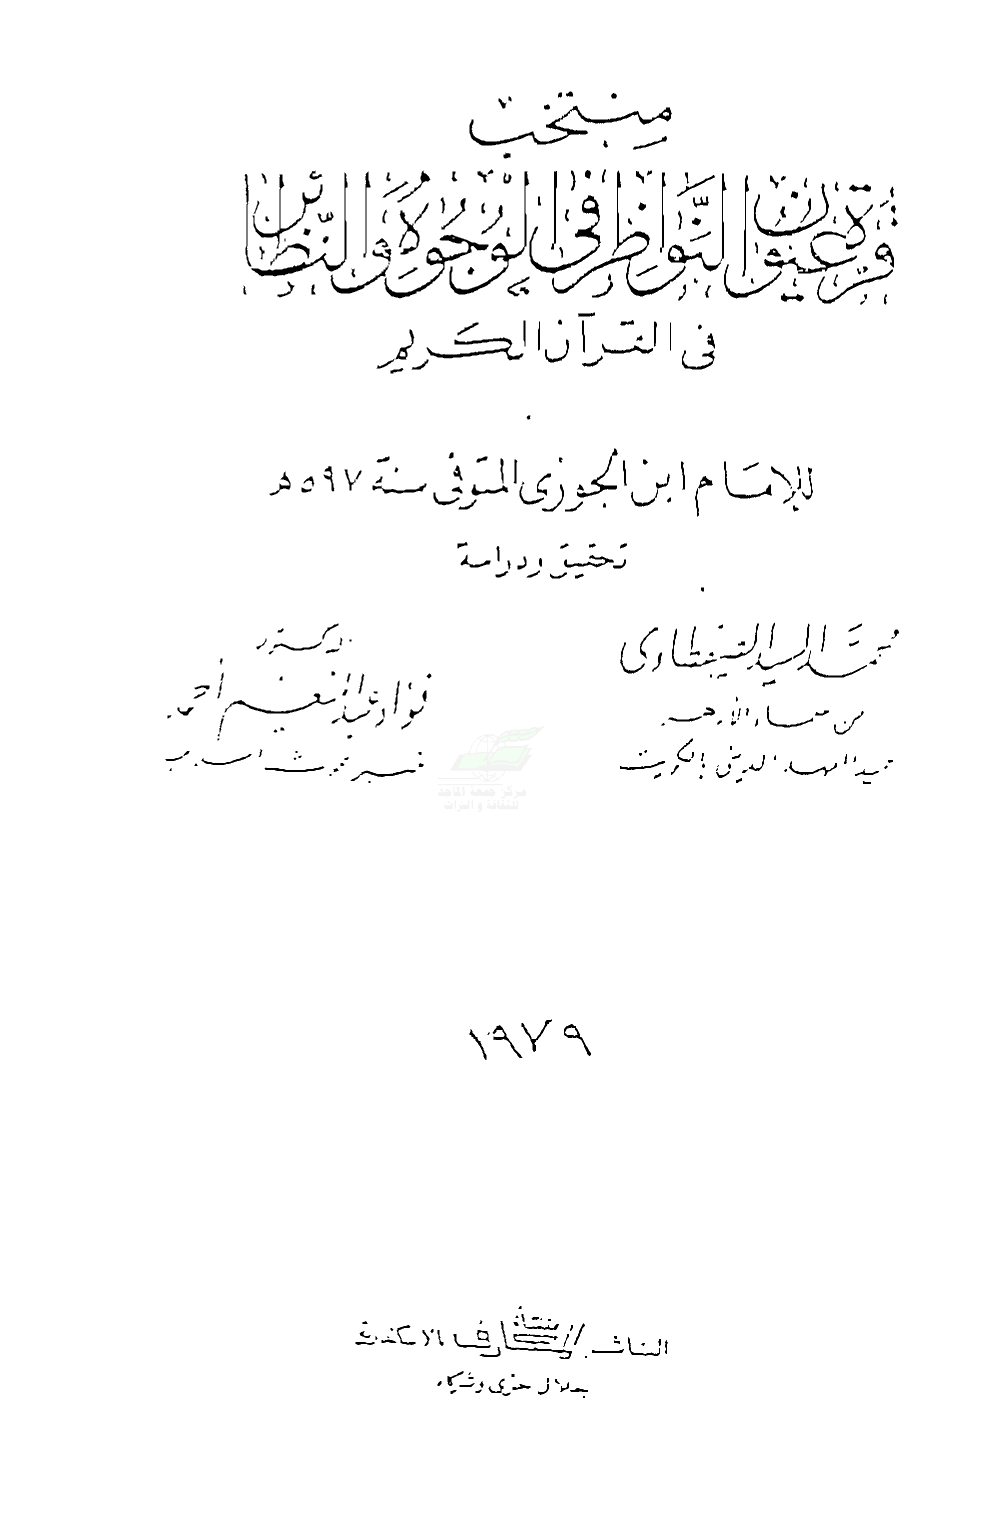 منتخب
قرة عيون النواظر في الوجوه والنظائر
فى القرآن الكريم
للإمام ابن الجوزى المتوفى سنة ٥٩٧ هـ
تحقيق ودراسة
محمد السيد الصفطاوى
من علماء الأزهر
عميد المعهد الدينى بالكويت
دكتور
فؤاد عبد المنعم أحمد
خبير بحوث اسلامية
مركز جمعة الماجد
للثقافة و التراث
١٩٧٩
الناشر منشأة المعارف بالاسكندرية
جلال حزى وشركاه